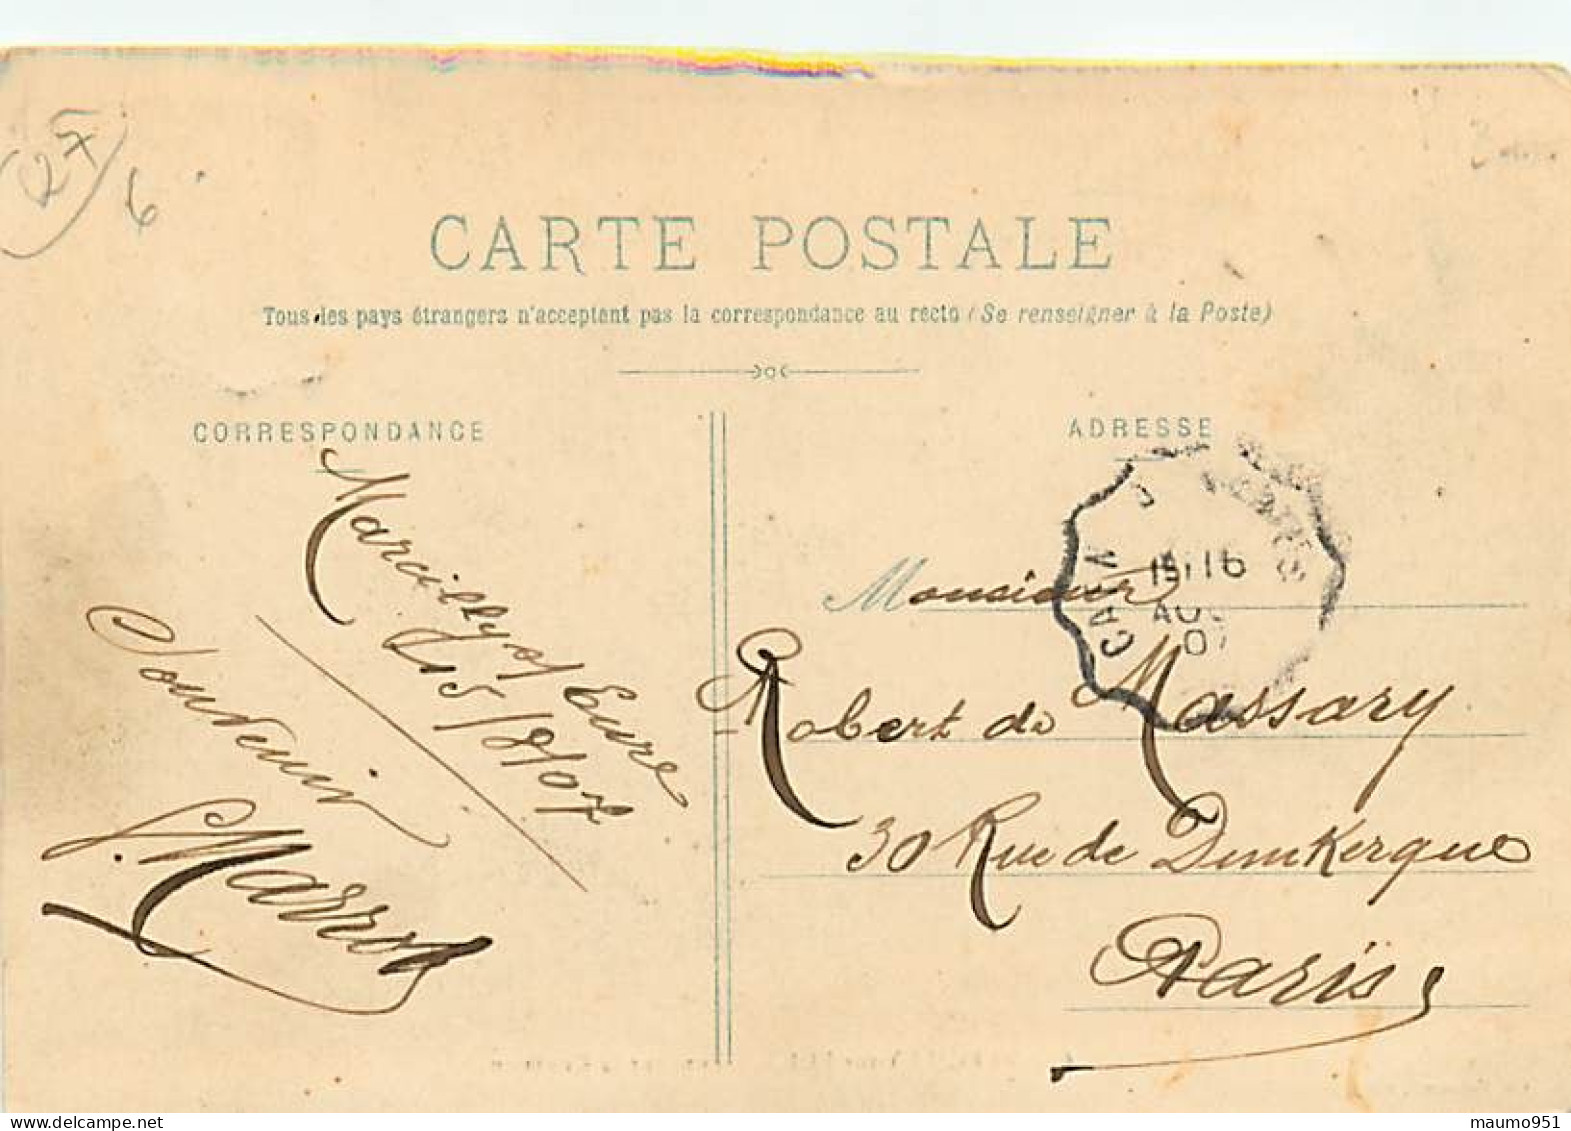 27
6
CARTE POSTALE
Tous les pays étrangers n'acceptent pas la correspondance au recto (Se renseigner à la Poste)
CORRESPONDANCE
ADRESSE
Marcilly s/ Eure
15/8/07
Souvenir
Marrot
CAEN
16
07
Monsieur
Robert de Massary
30 Rue de Dunkerque
Paris
maumo951